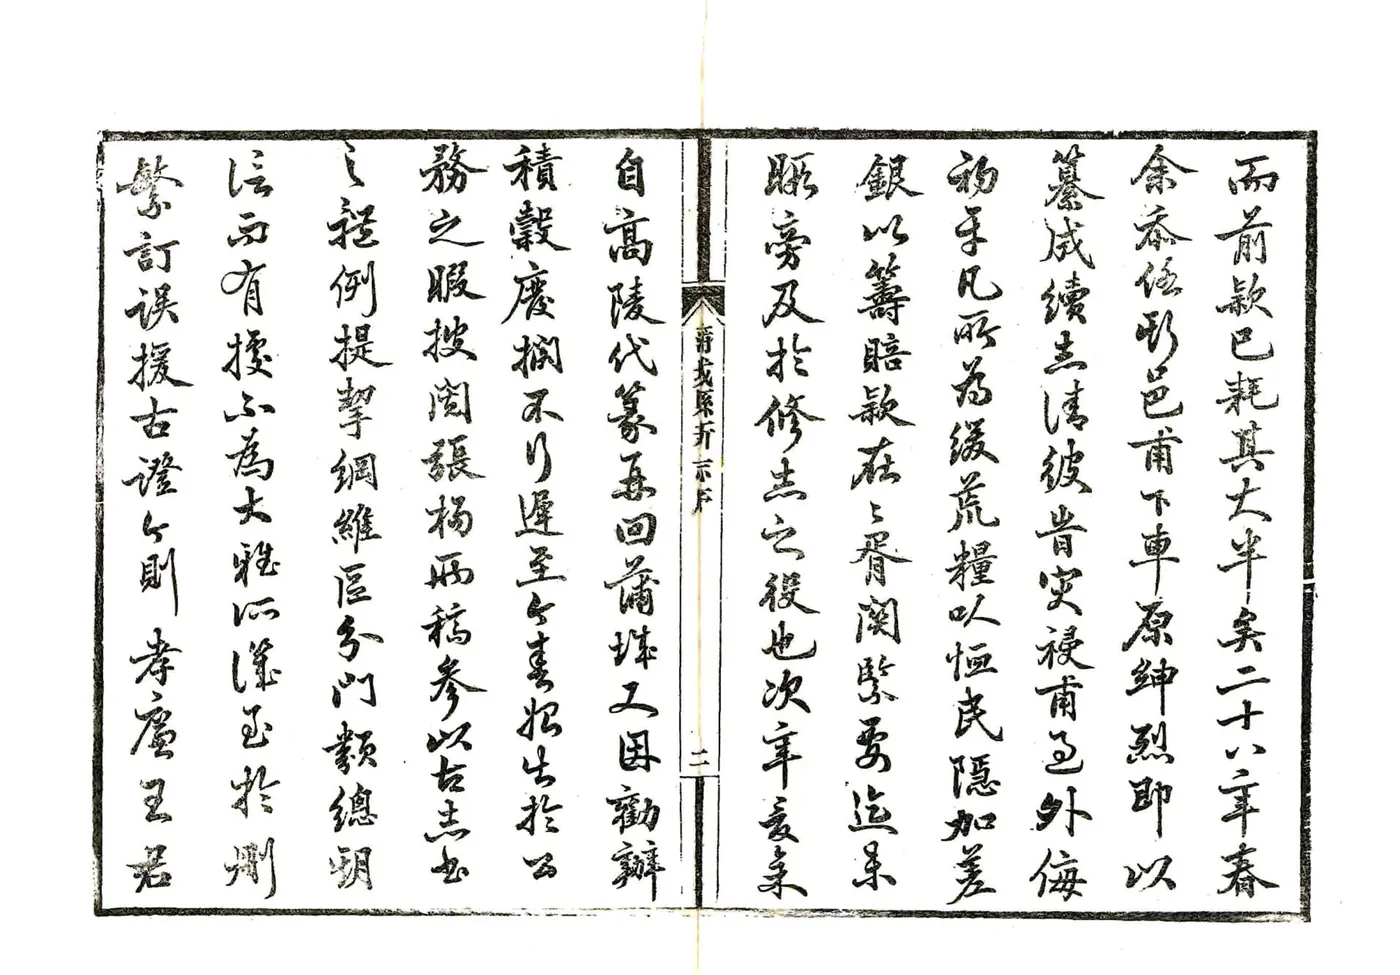 而前款已耗其大半矣二十八年春
余忝任斯邑甫下車原紳烈即以
纂成續志請彼時災祲甫過外侮
初平凡所為緩荒糧以恤民隱加差
銀以籌賠款在在胥關緊要迄未
暇旁及於修志之役也次年夏余
蒲城縣新志序
二
自高陵代篆再回蒲城又因勸辦
積穀廢擱不行遲至今春始出於公
務之暇搜閱張楊兩稿參以古志書
之體例提挈綱維區分門類總期
信而有據不為大雅所譏至於刪
繁訂誤援古證今則孝廉王君